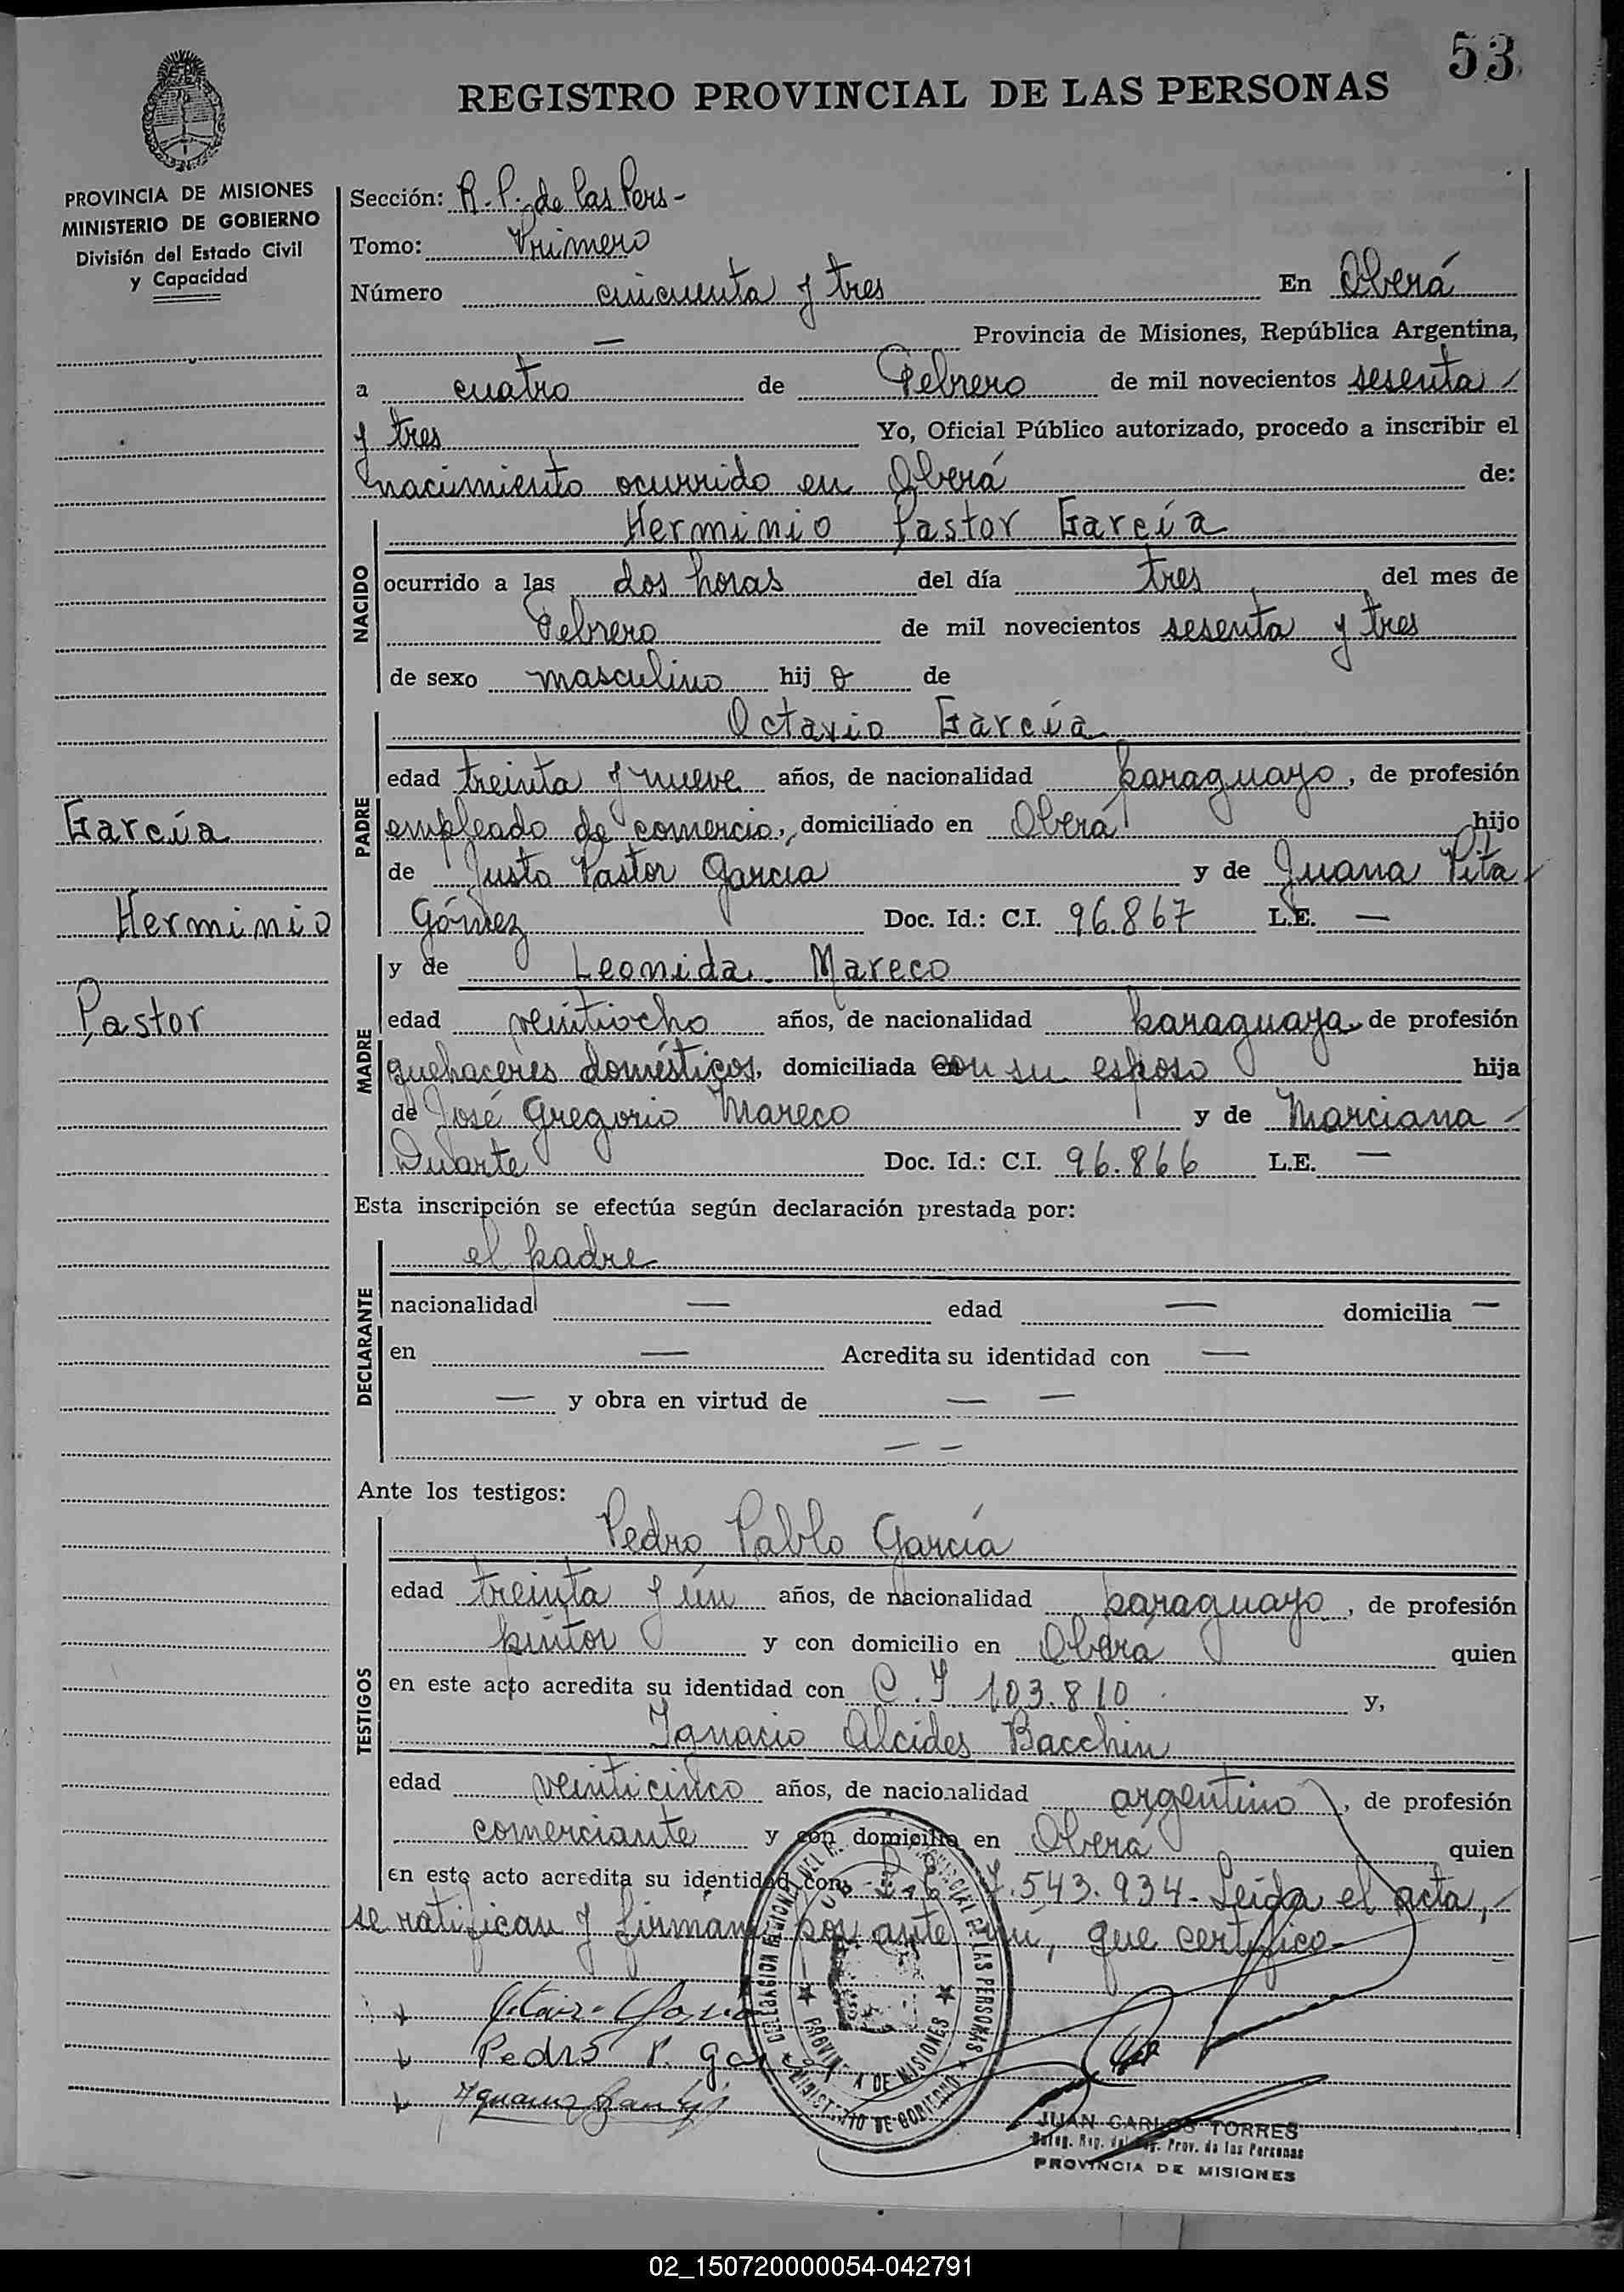 53
REGISTRO PROVINCIAL DE LAS PERSONAS
PROVINCIA DE MISIONES
MINISTERIO DE GOBIERNO
División del Estado Civil
y Capacidad
Sección: R. P. de las Pers-
Tomo: Primero
Número cincuenta y tres En Oberá
— Provincia de Misiones, República Argentina,
a cuatro de Febrero de mil novecientos sesenta
y tres Yo, Oficial Público autorizado, procedo a inscribir el
nacimiento ocurrido en Oberá de:
NACIDO
Herminio Pastor García
ocurrido a las dos horas del día tres del mes de
Febrero de mil novecientos sesenta y tres
de sexo masculino hij o de
PADRE
Octavio García
edad treinta y nueve años, de nacionalidad paraguayo, de profesión
empleado de comercio, domiciliado en Oberá hijo
de Justo Pastor García y de Juana Pita
Gómez Doc. Id.: C.I. 96.867 L.E. —
García
Herminio
Pastor
MADRE
y de Leonida Mareco
edad veintiocho años, de nacionalidad paraguaya de profesión
quehaceres domésticos, domiciliada con su esposo hija
de José Gregorio Mareco y de Marciana -
Duarte Doc. Id.: C.I. 96.866 L.E. —
Esta inscripción se efectúa según declaración prestada por:
DECLARANTE
el padre
nacionalidad — edad — domicilia —
en — Acredita su identidad con —
— y obra en virtud de — —
— —
Ante los testigos:
TESTIGOS
Pedro Pablo García
edad treinta y ún años, de nacionalidad paraguayo, de profesión
pintor y con domicilio en Oberá quien
en este acto acredita su identidad con C. I 103.810 y,
Ignacio Alcides Bacchin
edad veinticinco años, de nacionalidad argentino, de profesión
comerciante y con domicilio en Oberá quien
en este acto acredita su identidad con 7.543.934- Leída el acta, -
se ratifican y firman por ante mí, que certifico-
Pedro P. Gar
DELEGACION REGIONAL DEL PROVINCIAL DE LAS PERSONAS
PROVINCIA DE MISIONES
MINISTERIO DE GOBIERNO
JUAN CARLOS TORRES
Deleg. Reg. del Reg. Prov. de las Personas
PROVINCIA DE MISIONES
02_150720000054-042791